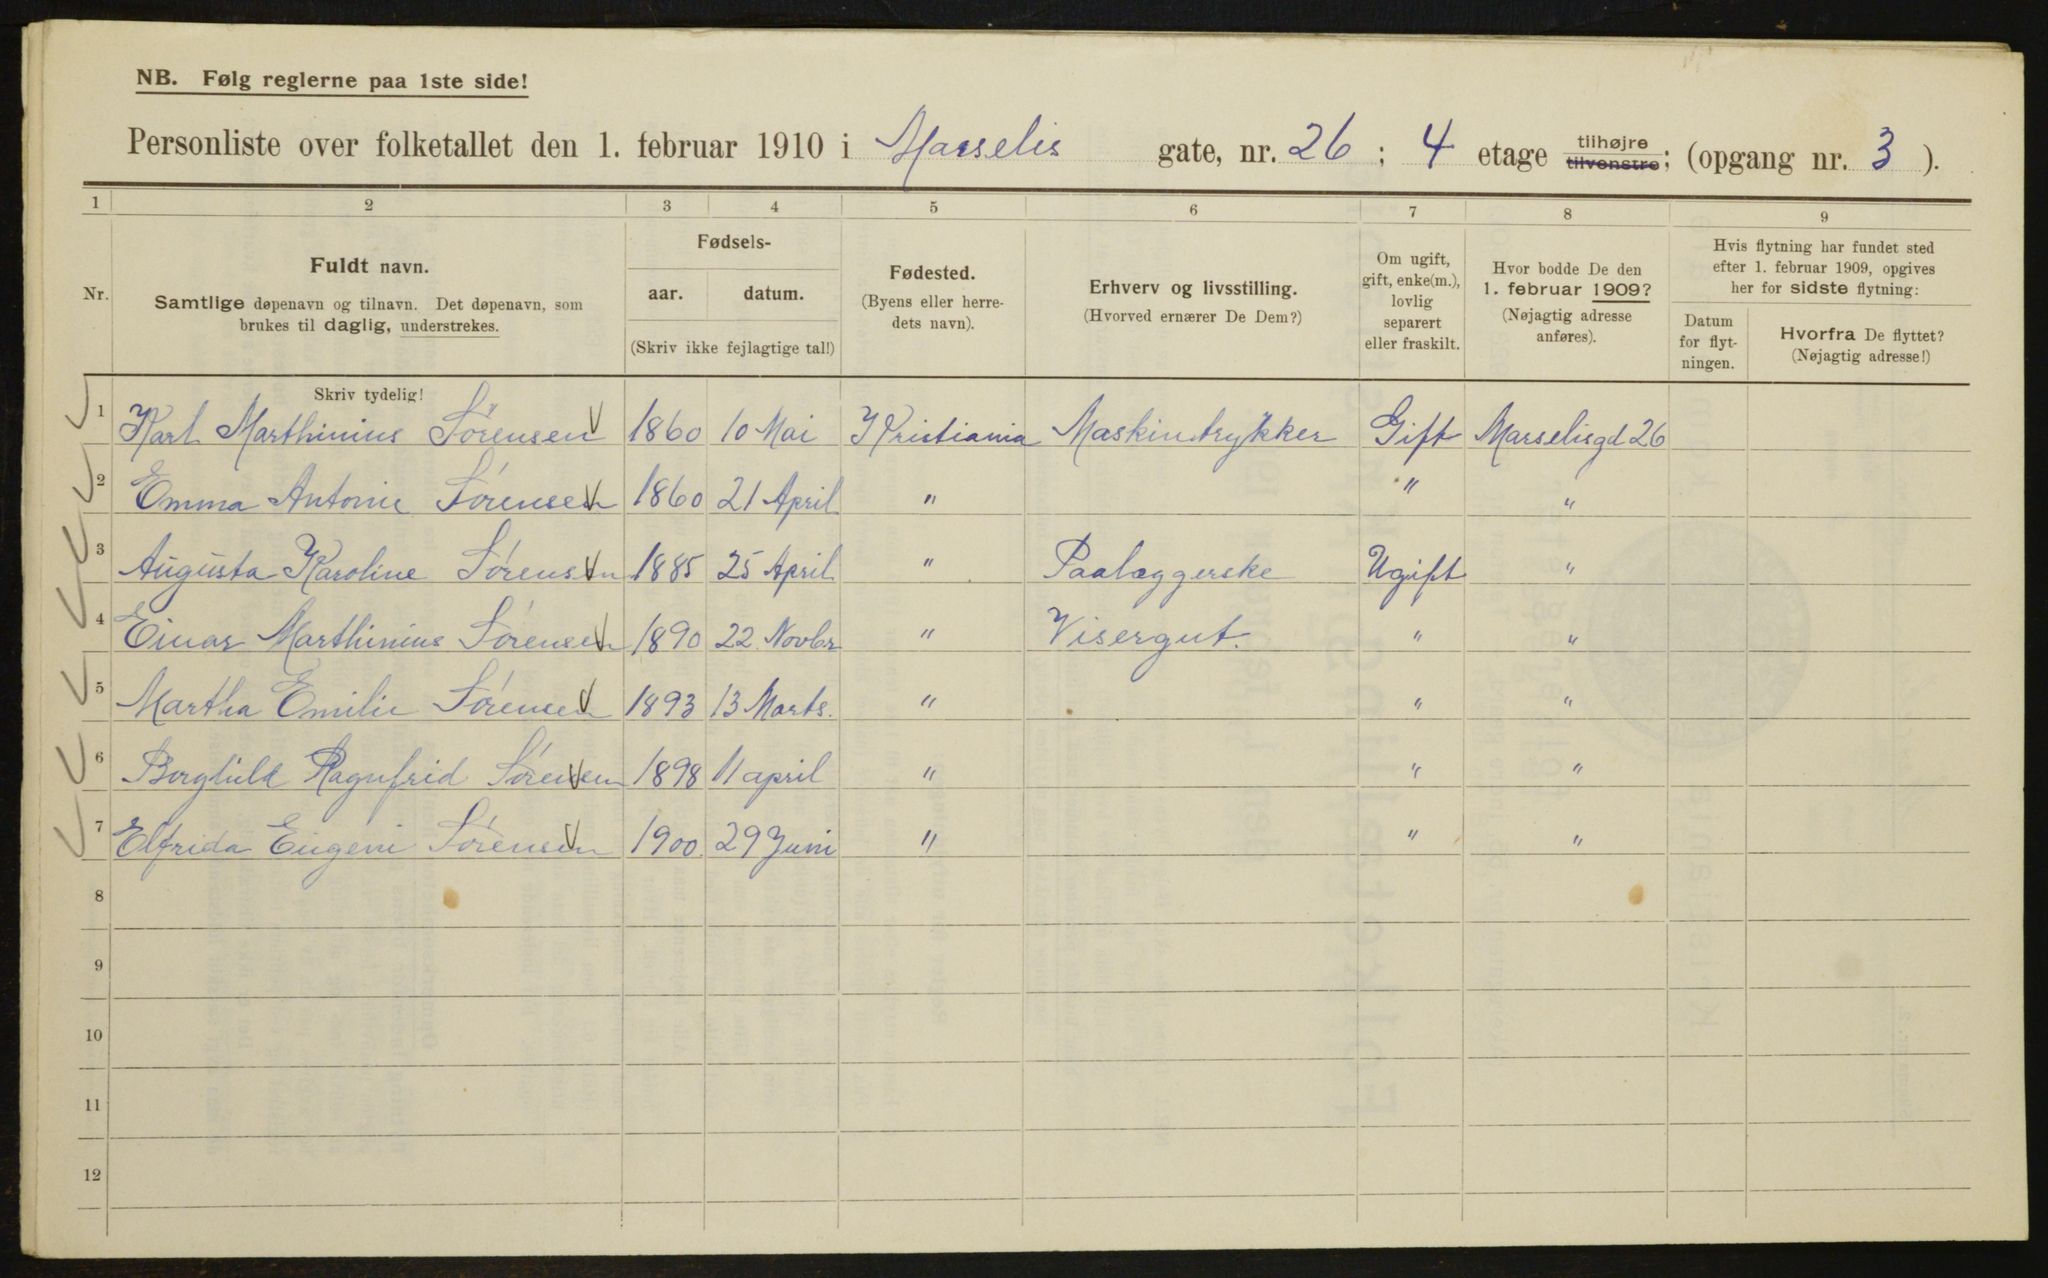 NB. Følg reglerne paa 1ste side!
Personliste over folketallet den 1. februar 1910 i Marselis gate, nr. 26 ; 4 etage tilhøjre tilvenstre; (opgang nr. 3 ).
1 2 3 4 5 6 7 8 9
Nr.
Fuldt navn.
Samtlige døpenavn og tilnavn. Det døpenavn, som
brukes til daglig, understrekes.
Skriv tydelig!
Fødsels-
aar. datum.
(Skriv ikke fejlagtige tal!)
Fødested.
(Byens eller herre-
dets navn).
Erhverv og livsstilling.
(Hvorved ernærer De Dem?)
Om ugift,
gift, enke(m.),
lovlig
separert
eller fraskilt.
Hvor bodde De den
1. februar 1909?
(Nøjagtig adresse
anføres).
Hvis flytning har fundet sted
efter 1. februar 1909, opgives
her for sidste flytning:
Datum
for flyt-
ningen.
Hvorfra De flyttet?
(Nøjagtig adresse!)
1 Karl Marthinius Sørensen 1860 10 Mai Kristiania Maskintrykker Gift Marselisgd 26
2 Emma Antonie Sørensen 1860 21 April " " "
3 Augusta Karoline Sørensen 1885 25 April " Paalæggerske Ugift "
4 Einar Marthinius Sørensen 1890 22 Novbr " Visergut. " "
5 Martha Emilie Sørensen 1893 13 Marts. " " "
6 Borghild Ragnfrid Sørensen 1898 11 april " " "
7 Elfrida Eugeni Sørensen 1900 29 Juni " " "
8
9
10
11
12